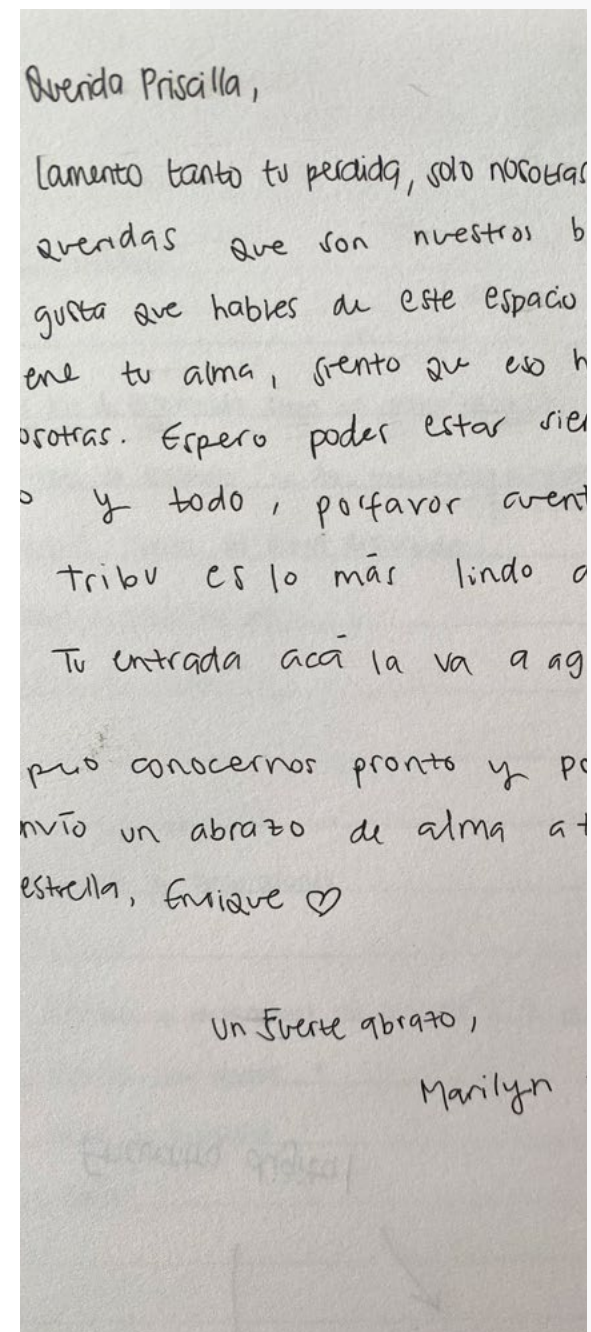 Querida Priscilla,
Lamento tanto tu perdida, solo nosotras
queridas que son nuestros b
gusta que hables de este espacio
ene tu alma, siento que eso h
osotras. Espero poder estar sie
o y todo, porfavor cuent
tribu es lo más lindo
Tu entrada acá la va a ag
conocernos pronto y po
nvío un abrazo de alma a t
estrella, Enrique ♡
Un fuerte abrazo,
Marilyn